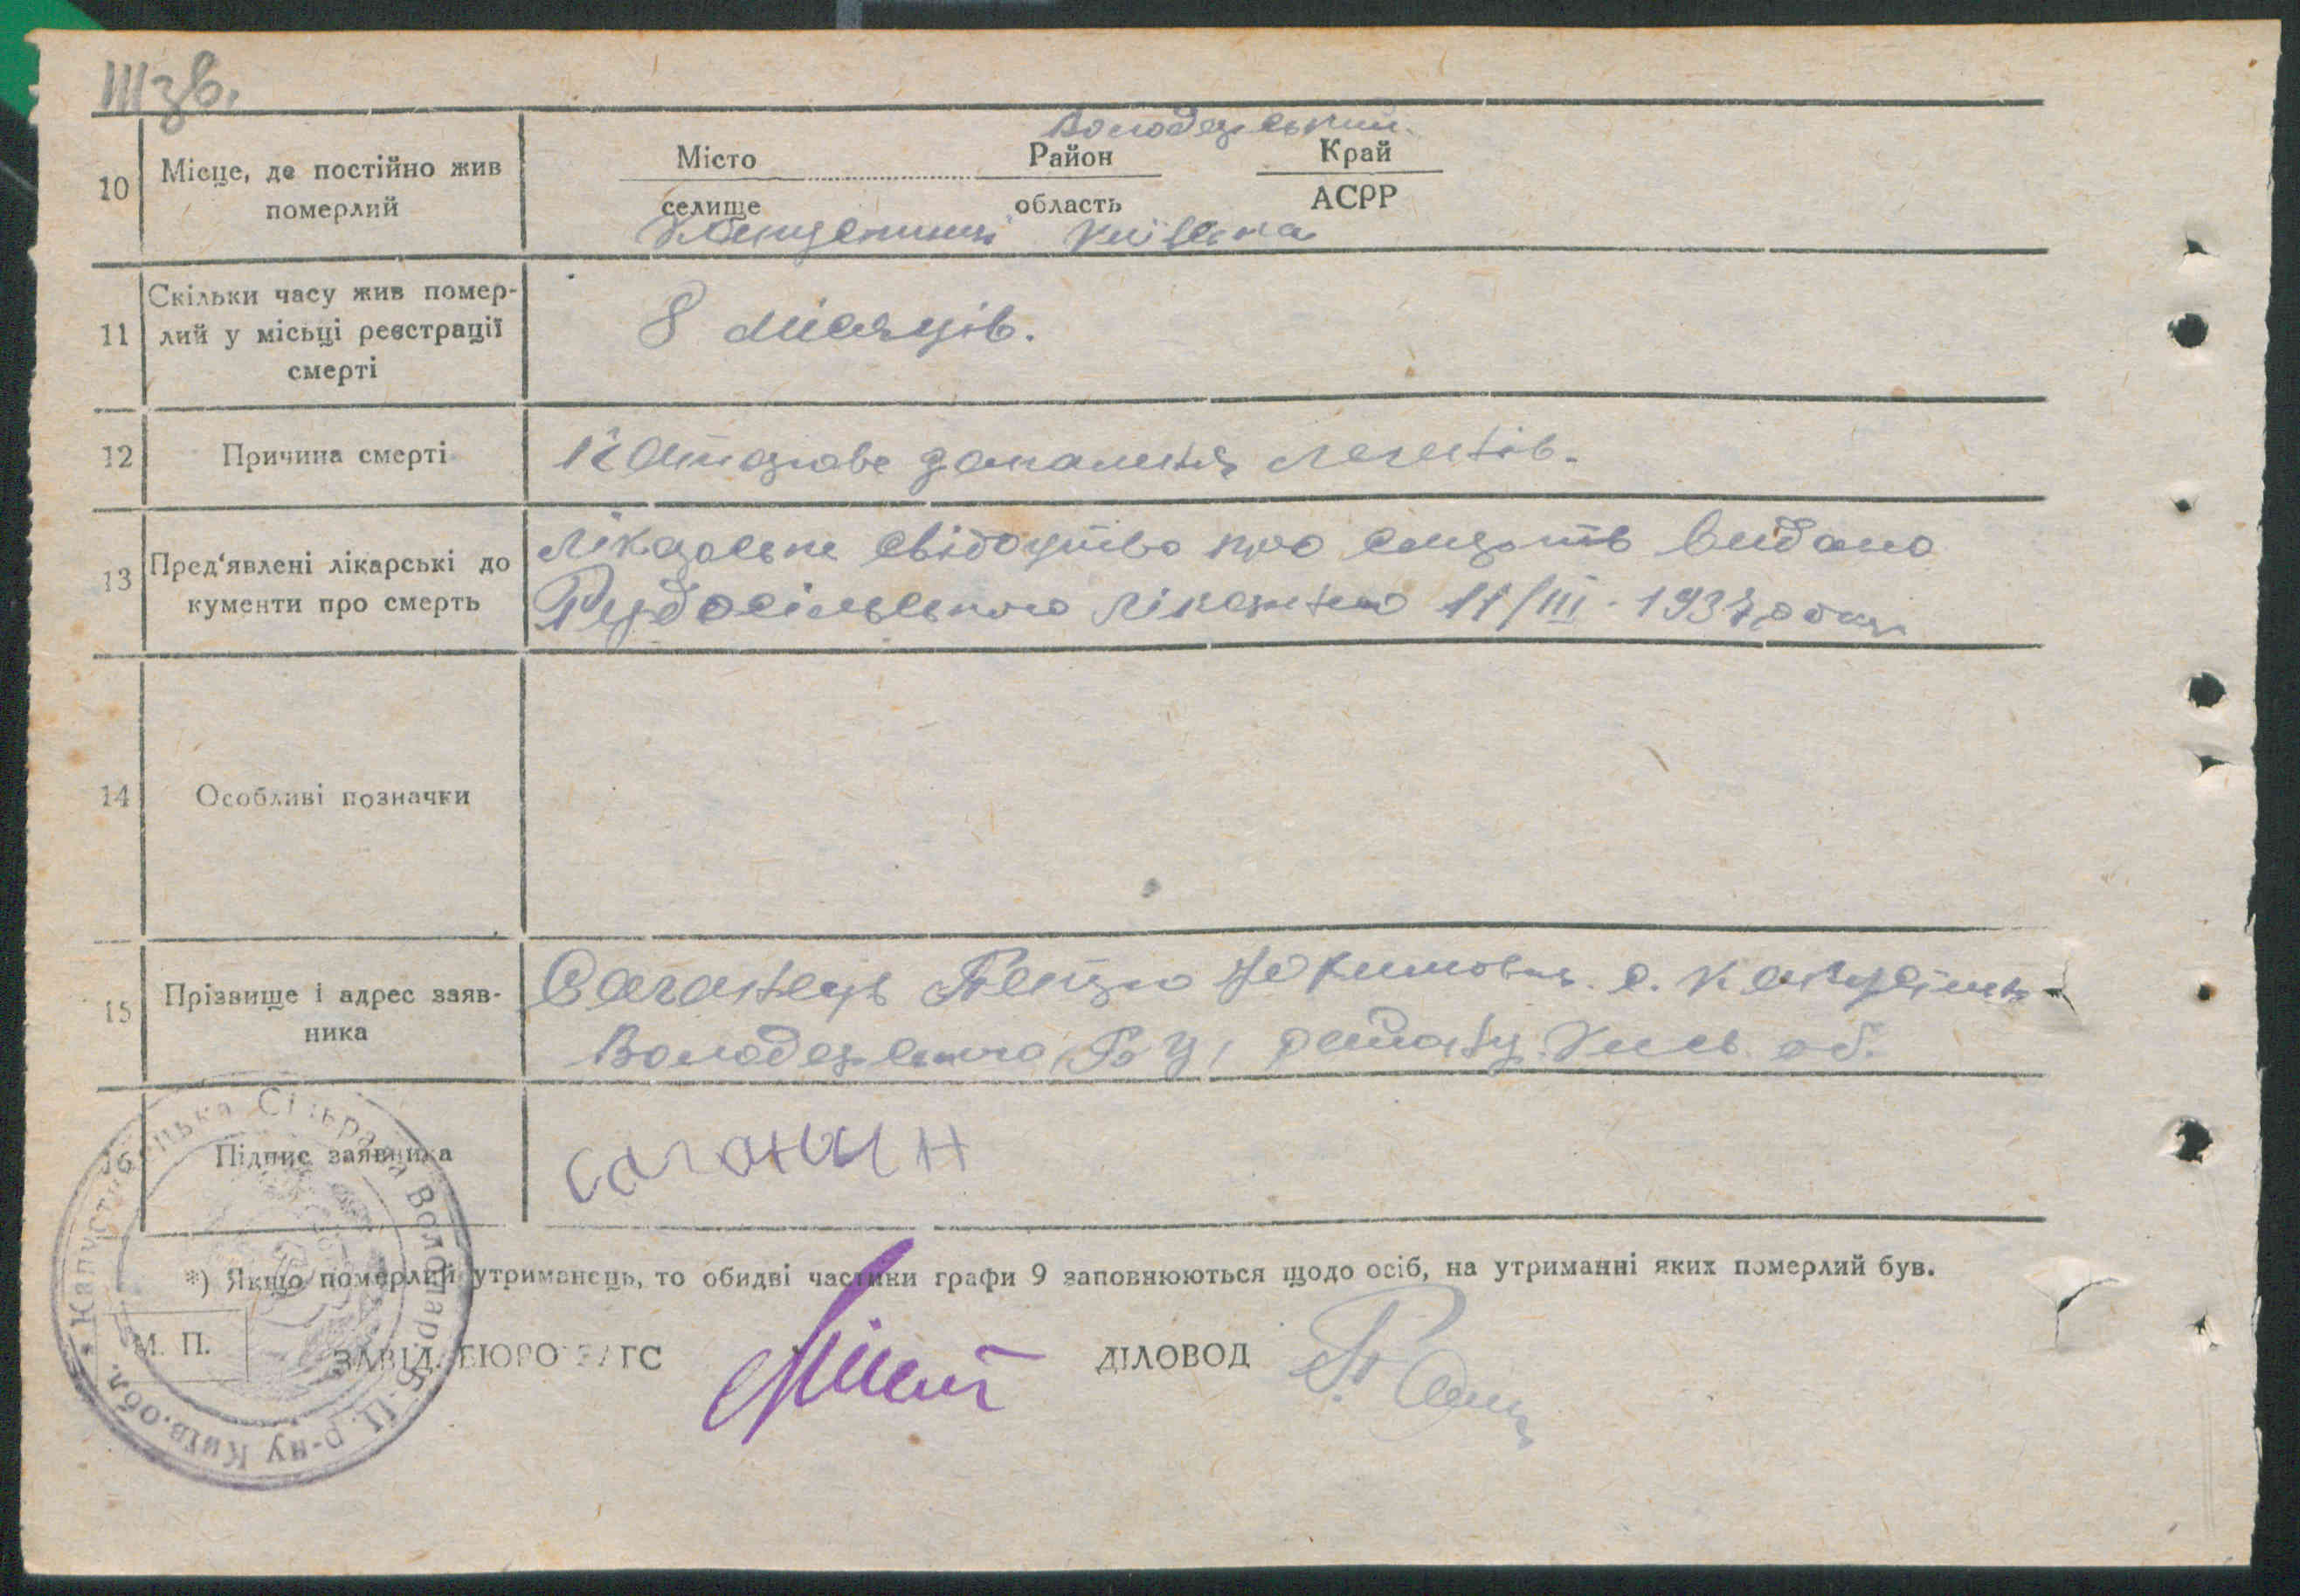 111 зв.
Володарський
10
Місце, де постійно жив
померлий
Місто Район Край
селище область АСРР
Київська
11
Скільки часу жив помер-
лий у місьці реєстрації
смерті
8 місяців.
12
Причина смерті
Катарове запалення легенів.
13
Пред'явлені лікарські до
кументи про смерть
Лікарське свідоцтво про смерть видано
Рудосільського лікарнею 11/III - 1937 року
14
Особливі позначки
15
Прізвище і адрес заяв-
ника
Саганець Петро с. Капустинц
Володарського р-ну, Київ об.
16
Підпис заявника
саганин
*) Якщо померлий утриманець, то обидві частини графи 9 заповнюються щодо осіб, на утриманні яких померлий був.
М. П.
ЗАВІД. БЮРО ЗАГС
ДІЛОВОД
Капустинська Сільрада Володар. Б-Ц. р-ну Київ. обл.